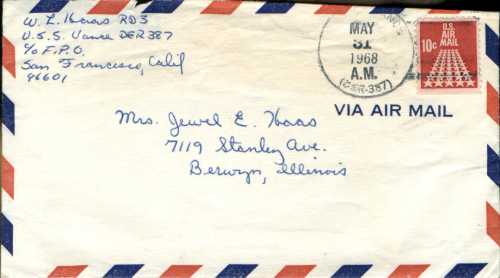 W. L. Haas RD3
U.S.S. Vance DER 387
c/o F.P.O.
San Francisco, Calif
96601
MAY
31
1968
A.M.
(DER-387)
U.S.
AIR
MAIL
10c
VIA AIR MAIL
Mrs. Jewel E. Haas
7119 Stanley Ave.
Berwyn, Illinois